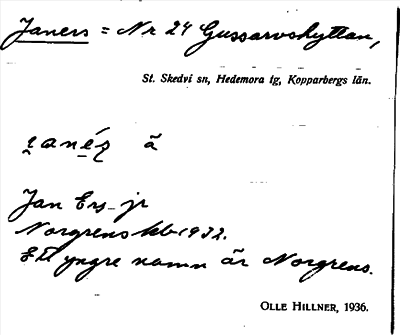 Janers = Nr 24 Gussarvshyttan,
St. Skedvi sn, Hedemora tg, Kopparbergs län.
ꞯanéꝛ̣ ã
Jan Ers jr
Norgrens kb 1932.
Ett yngre namn är Norgrens.
OLLE HILLNER, 1936.